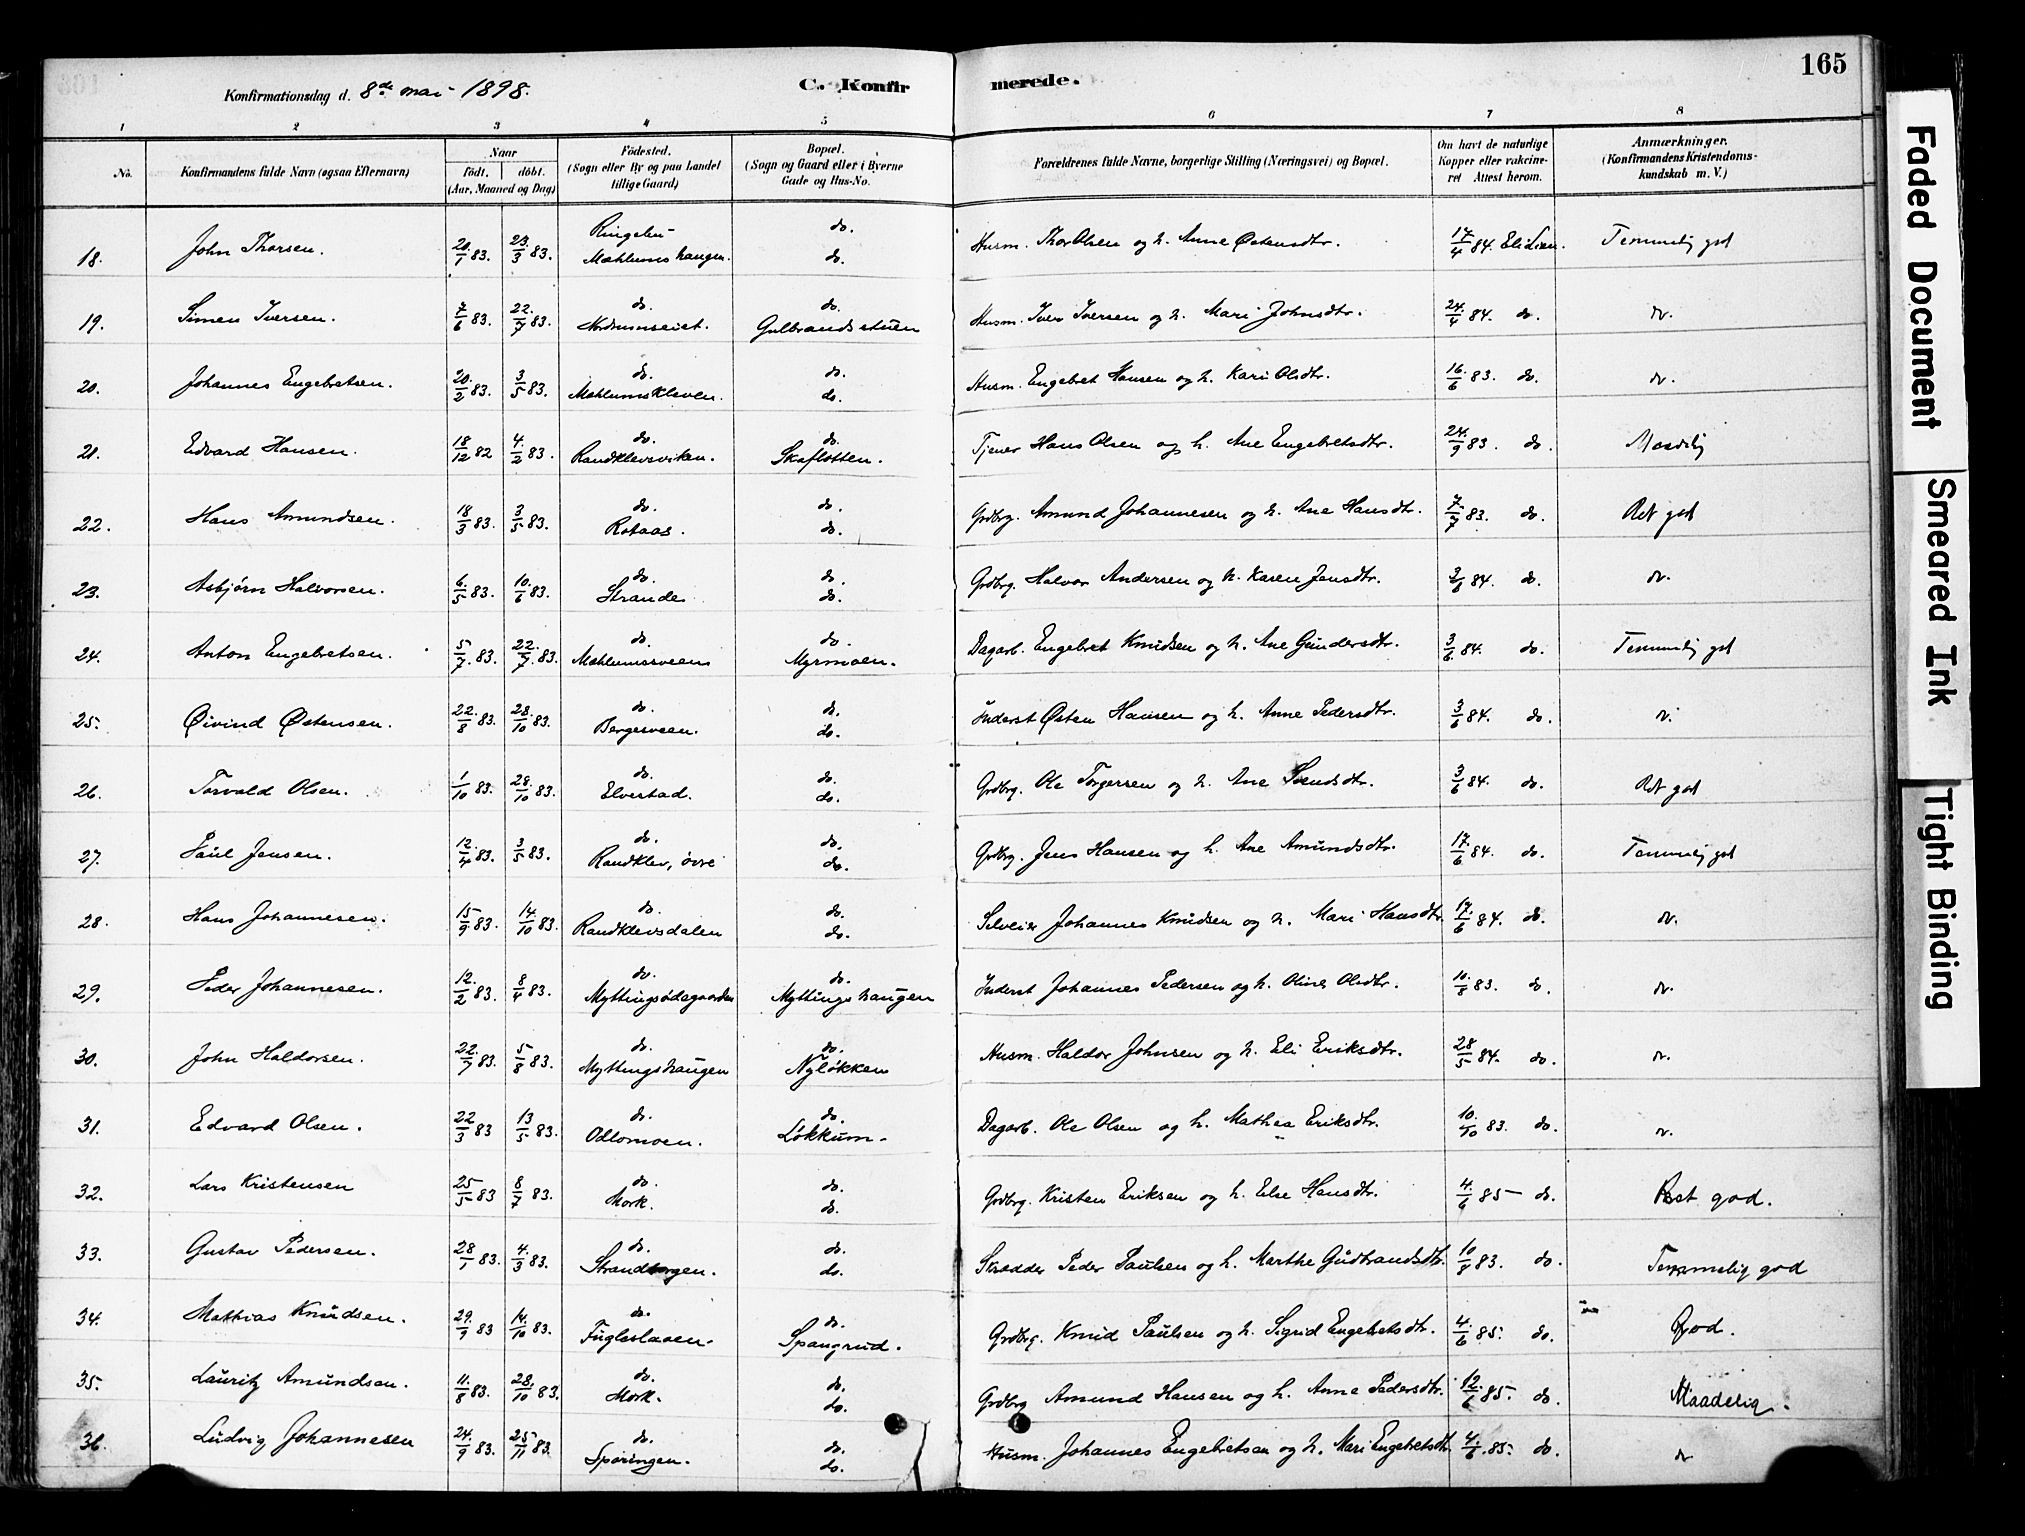 165
Konfirmationsdag d. 8de mai 1898.
C. Konfirmerede.
1 2 3 4 5 6 7 8
No. Konfirmandens fulde Navn (ogsaa Efternavn) Naar født. døbt. (Aar, Maaned og Dag) Fødested. (Sogn eller By og paa Landet tillige Gaard) Bopæl. (Sogn og Gaard eller i Byerne Gade og Hus-No. Forældrenes fulde Navne, borgerlige Stilling (Næringsvei) og Bopæl. Om havt de naturlige Kopper eller vakcineret Attest herom. Anmærkninger. (Konfirmandens Kristendomskundskab m. V.)
18. John Thorsen. 20/1 83. 23/3 83. Ringebu Mæhlumshaugen. do. do. Husm. Thor Olsen og h. Anne Østensdtr. 17/4 84. Eli Lien. Temmelig god
19. Simen Iversen. 7/6 83. 22/7 83. do. Nordrumseiet. do. Gulbrandsstuen Husm. Iver Iversen og h. Mari Johnsdtr. 24/4 84. do. do.
20. Johannes Engebretsen. 20/2 83. 3/5 83. do. Mæhlumskleven. do. do. Husm. Engebret Hansen og h. Kari Olsdtr. 16/6 83. do. do.
21. Edvard Hansen. 18/12 82 4/2 83. do. Randklevsviken. do. Skaflotten. Tjener Hans Olsen og h. Ane Engebretsdtr. 24/9 83. do. Maadelig
22. Hans Amundsen. 18/3 83. 3/5 83. do. Rotaas. do. do. Grdbrg. Amund Johannesen og h. Ane Hansdtr. 7/7 83. do. Ret god
23. Asbjørn Halvorsen. 6/5 83. 10/6 83. do. Strande. do. do. Grdbrg. Halvor Andersen og h. Karen Jensdtr. 3/6 84. do. do.
24. Anton Engebretsen. 5/7 83. 22/7 83. do. Mæhlumsveen do. Myrmoen. Dagarb. Engebret Knudsen og h. Ane Gundersdtr. 3/6 84. do. Temmelig god
25. Øivind Østensen. 22/8 83. 28/10 83. do. Bergesveen. do. do. Inderst Østen Hansen og h. Anne Pedersdtr. 3/6 84. do. do.
26. Torvald Olsen. 1/10 83. 28/10 83. do. Elvestad. do. do. Grdbrg. Ole Torgersen og h. Ane Svendsdtr. 3/6 84. do. Ret god
27. Paul Jensen. 12/4 83. 3/5 83. do. Randklev, øvre do. do. Grdbrg. Jens Hansen og h. Ane Amundsdtr. 17/6 84. do. Temmelig god
28. Hans Johannesen. 15/9 83. 14/10 83. do. Randklevsdalen do. do. Selveier Johannes Knudsen og h. Mari Hansdtr. 17/6 84. do. do.
29. Peder Johannesen. 12/2 83. 8/4 83. do. Myttingsødagaarden do. Myttingshaugen Inderst Johannes Pedersen og h. Oline Olsdtr. 10/8 83. do. do.
30. John Haldorsen. 22/7 83. 5/8 83. do. Myttingshaugen do. Nyløkken Husm. Haldor Johnsen og h. Eli Eriksdtr. 28/5 84. do. do.
31. Edvard Olsen. 22/3 83 13/5 83. do. Odlomoen. do. Løkkum. Dagarb. Ole Olsen og h. Mathea Eriksdtr. 10/10 83. do. do.
32. Lars Kristensen 25/5 83 8/7 83. do. Mork. do. do. Grdbrg. Kristen Eriksen og h. Else Hansdtr. 4/6 85 do. Ret god.
33. Gustav Pedersen. 28/1 83. 4/3 83. do. Strandborgen. do. do. Skrædder Peder Paulsen og h. Marthe Gudbrandsdtr. 10/8 83. do. Temmelig god
34. Mathias Knudsen. 29/9 83 14/10 83. do. Fugleslaaen. do. Spangrud. Grdbrg. Knud Paulsen og h. Sigrid Engebretsdtr. 4/6 85. do. God.
35. Lauritz Amundsen. 11/8 83. 28/10 83. do. Mork. do. do. Grdbrg Amund Hansen og h. Anne Pedersdtr. 12/6 85 do. Maadelig.
36. Ludvig Johannesen 24/9 83. 25/11 83. do. Sparingen. do. do. Husm. Johannes Engebretsen og h. Mari Engebretsdtr. 4/6 85 do. do
Faded Document
Smeared Ink
Tight Binding